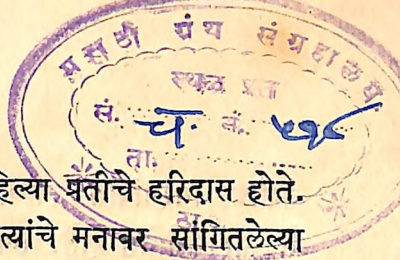 मराठी ग्रंथ संग्रहालय
स्थळ प्रत
सं. च. नं.
ता.
हिल्या प्रतीचे हरिदास होते.
त्यांचे मनावर सांगितलेल्या